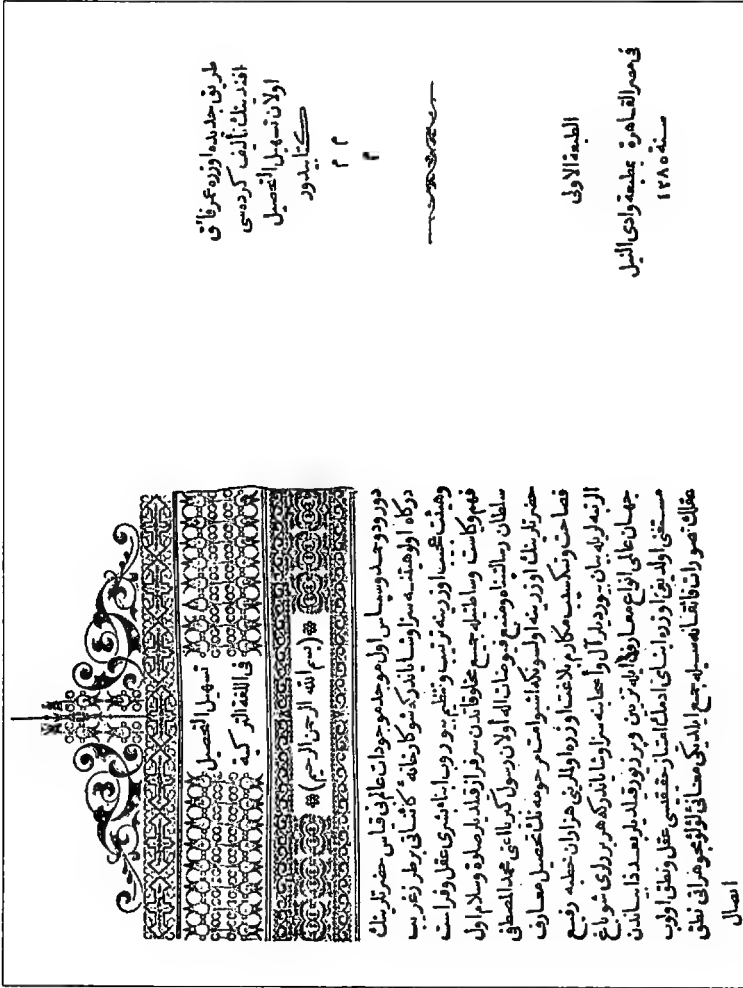 طريق جديده اوزره عمر فائق
افندينك تأليف كرده سى
اولان تسهيل التحصيل
كتابيدور
م م
م
الطبعة الاولى
فى مصر القاهرة بمطبعة وادى النيل
سنة ١٢٨٥
تسهيل التحصيل
فى اللغة التركية
(بسم الله الرحمن الرحيم)
دورود وحمد وسپاس اول موجد موجودات عالم حضرتلرينك
دركاه الوهيتنه سزا وشاياندركه شو كارخانه كائناتى بر طرز غريب
وهيئت عجيب اوزرينه ترتيب وتنظيم بيوروب ابناء بشرى عقل وفراست
فهم وكاست وساطتيله جميع مخلوقاتدن سرفراز قلديلر صلاة وسلام اول
سلطان رسالتپناه ومنبع فيوضات اله اولان رسول كبريا اعنى محمد المصطفى
حضرتلرينك اوزرينه اولسونكه اشبو امت مرحومه نك تحصيل معارف
فصاحت ومكارم بلاغت اوزره اولملرينى هزاران خطبه رفيع
الرتبه لريله بيان بيورديلر آل واصحابنه سزا وشاياندركه هر برلرى شو باغ
جهان عالى انواع معارف ايله تزيين و پر نور قلديلر بعد ذا بياندن
مستغنى اولديغى اوزره ابناى آدمك امتياز حقيقيسى عقل ونطق اولوب
عقلك تصورات فائقانه سيله جمع ايلديكى معانئ لؤلؤ جوهرانى نطق
اتصال